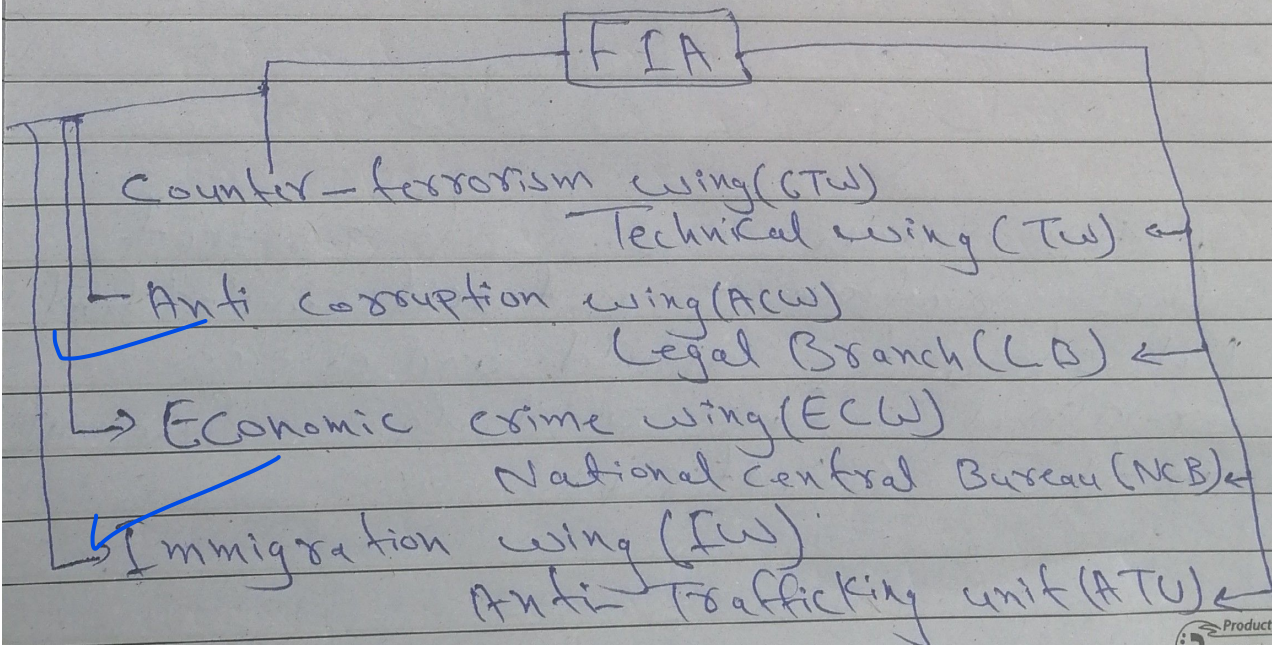 FIA
Counter-terrorism wing(CTW)
Technical wing (TW)
Anti corruption wing(ACW)
Legal Branch(LB)
Economic crime wing(ECW)
National Central Bureau(NCB)
Immigration wing (IW)
Anti-Trafficking unit(ATU)
Product